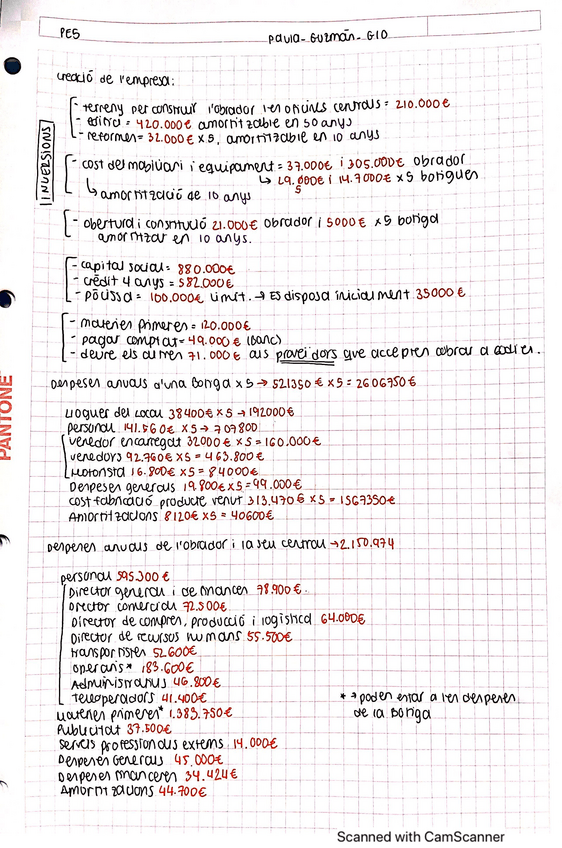 PE5
Paula-Guzmán-G10
creació de l'empresa:
INVERSIONS
- terreny per construir l'obrador i les oficines centrals = 210.000€
- edifici = 420.000€ amortitzable en 50 anys
- reformes = 32.000€ x 5, amortitzable en 10 anys
- cost del mobiliari i equipament = 37.000€ i 305.000€ obrador
↳ 29.500€ i 14.7000€ x 5 botigues
↳ amortització de 10 anys
- obertura i constitució 21.000€ obrador i 5000€ x 5 botiga
amortitzar en 10 anys.
- capital social = 880.000€
- crèdit 4 anys = 582.000€
- pòlissa = 100.000€ límit. → Es disposa inicialment 35000€
- matèries primeres = 120.000€
- pagar comptat = 49.000€ (banc)
- deure els altres 71.000€ als proveïdors que accepten cobrar a 60 dies.
Despeses anuals d'una botiga x 5 → 521350€ x 5 = 2606750€
Lloguer del local 38400€ x 5 → 192000€
Personal 141.560€ x 5 → 707800
Venedor encarregat 32000€ x 5 = 160.000€
venedors 92.760€ x 5 = 463.800€
Motorista 16.800€ x 5 = 84000€
Despeses generals 19.800€ x 5 = 99.000€
cost fabricació producte venut 313.470€ x 5 = 1567350€
Amortitzacions 8120€ x 5 = 40600€
Despeses anuals de l'obrador i la seu central → 2.150.974
personal 595.300€
Director general i de finances 78.900€.
Director comercial 72.500€
Director de compres, producció i logística 64.000€
Director de recursos humans 55.500€
transportistes 52.600€
operaris* 183.600€
Administratius 46.800€
Teleoperadors 41.400€
* → poden estar a les despeses
de la botiga
Matèries primeres* 1.383.750€
Publicitat 37.500€
Serveis professionals externs 14.000€
Despeses Generals 45.000€
Despeses financeres 34.424€
Amortitzacions 44.700€
PANTONE®
Scanned with CamScanner